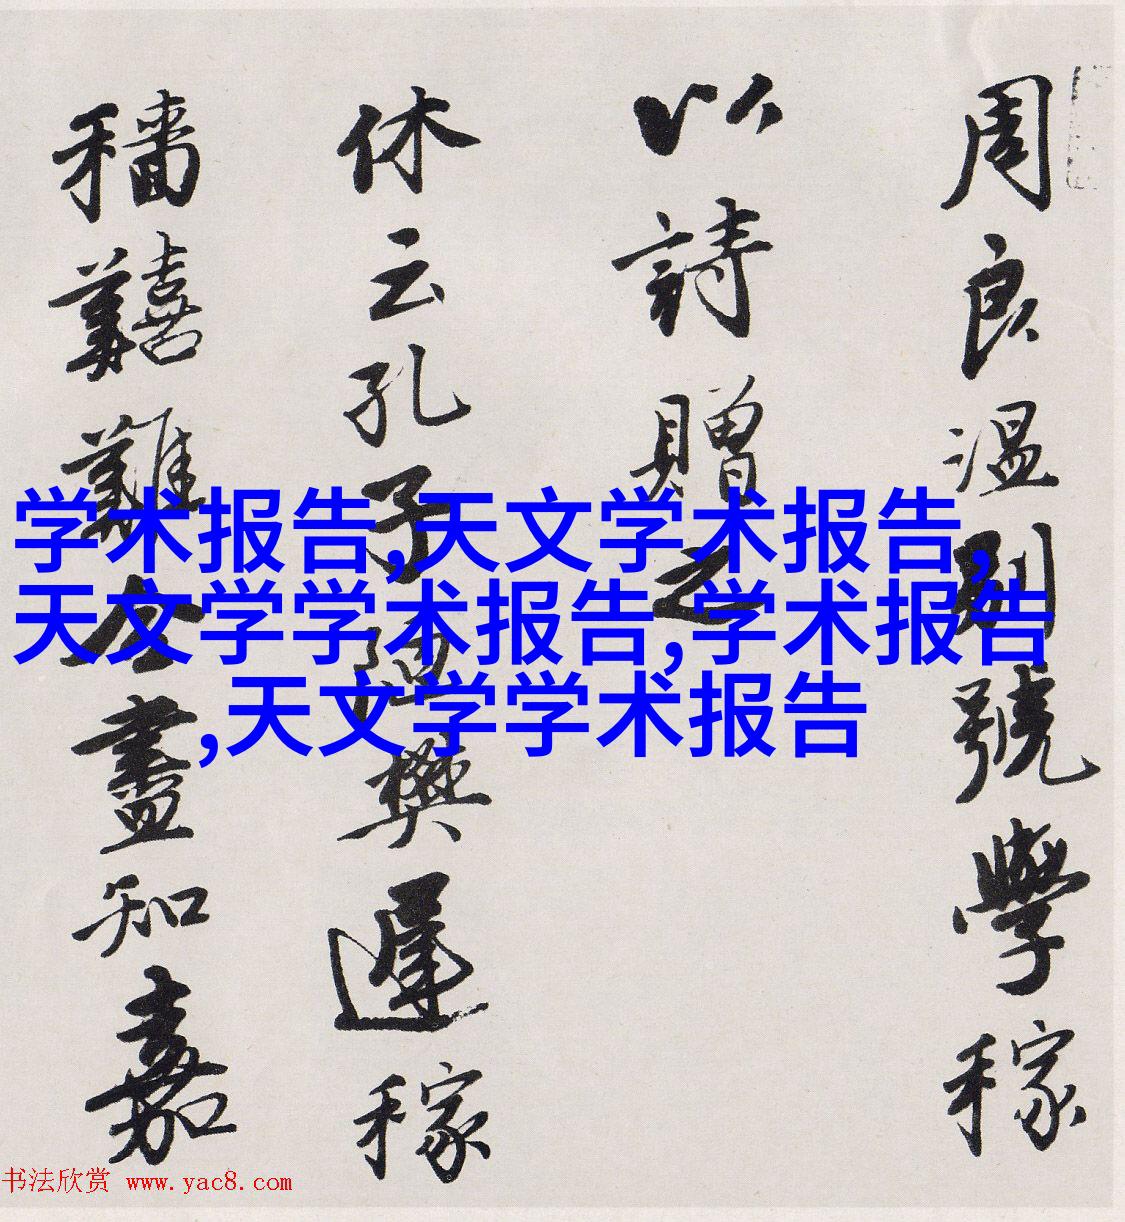 周良温别號學稼
以詩贈之
休云孔子陋樊遲稼
穡囏難合盡知嘉
学术报告,天文学术报告,
天文学学术报告,学术报告
,天文学学术报告
书法欣赏 www.yac8.com